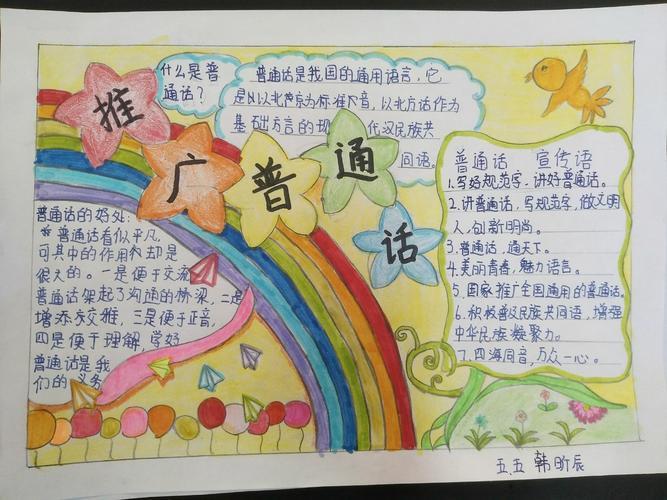 推广普通话
什么是普
通话？
普通话是我国的通用语言，它
是以北京为标准音，以北方话作为
基础方言的现代汉民族共
同语。
普通话的好处：
*普通话看似平凡，
可其中的作用却是
很大的。一是便于交流
普通话架起了沟通的桥梁，二是
增添交雅，三是便于正音，
四是便于理解，学好
普通话是我
们的义务
普通话 宣传语
1.写好规范字，讲好普通话。
2.讲普通话，写规范字，做文明
人，创新明尚。
3.普通话，通天下。
4.美丽青春，魅力语言。
5.国家推广全国通用的普通话。
6.积极普及民族共同语，增强
中华民族凝聚力。
7.四海同音，万众一心。
五.五 韩昕辰